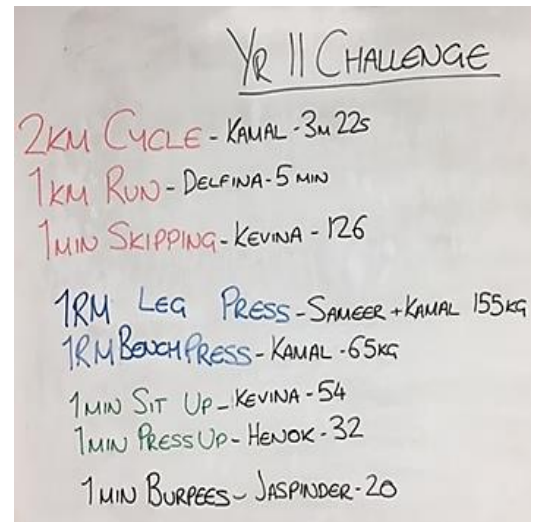 YR 11 CHALLENGE
2KM CYCLE - KAMAL - 3M 22S
1KM RUN - DELFINA - 5 MIN
1MIN SKIPPING - KEVINA - 126
1RM LEG PRESS - SAMEER + KAMAL 155KG
1RM BENCH PRESS - KAMAL - 65KG
1MIN SIT UP - KEVINA - 54
1MIN PRESS UP - HENOK - 32
1MIN BURPEES - JASPINDER - 20